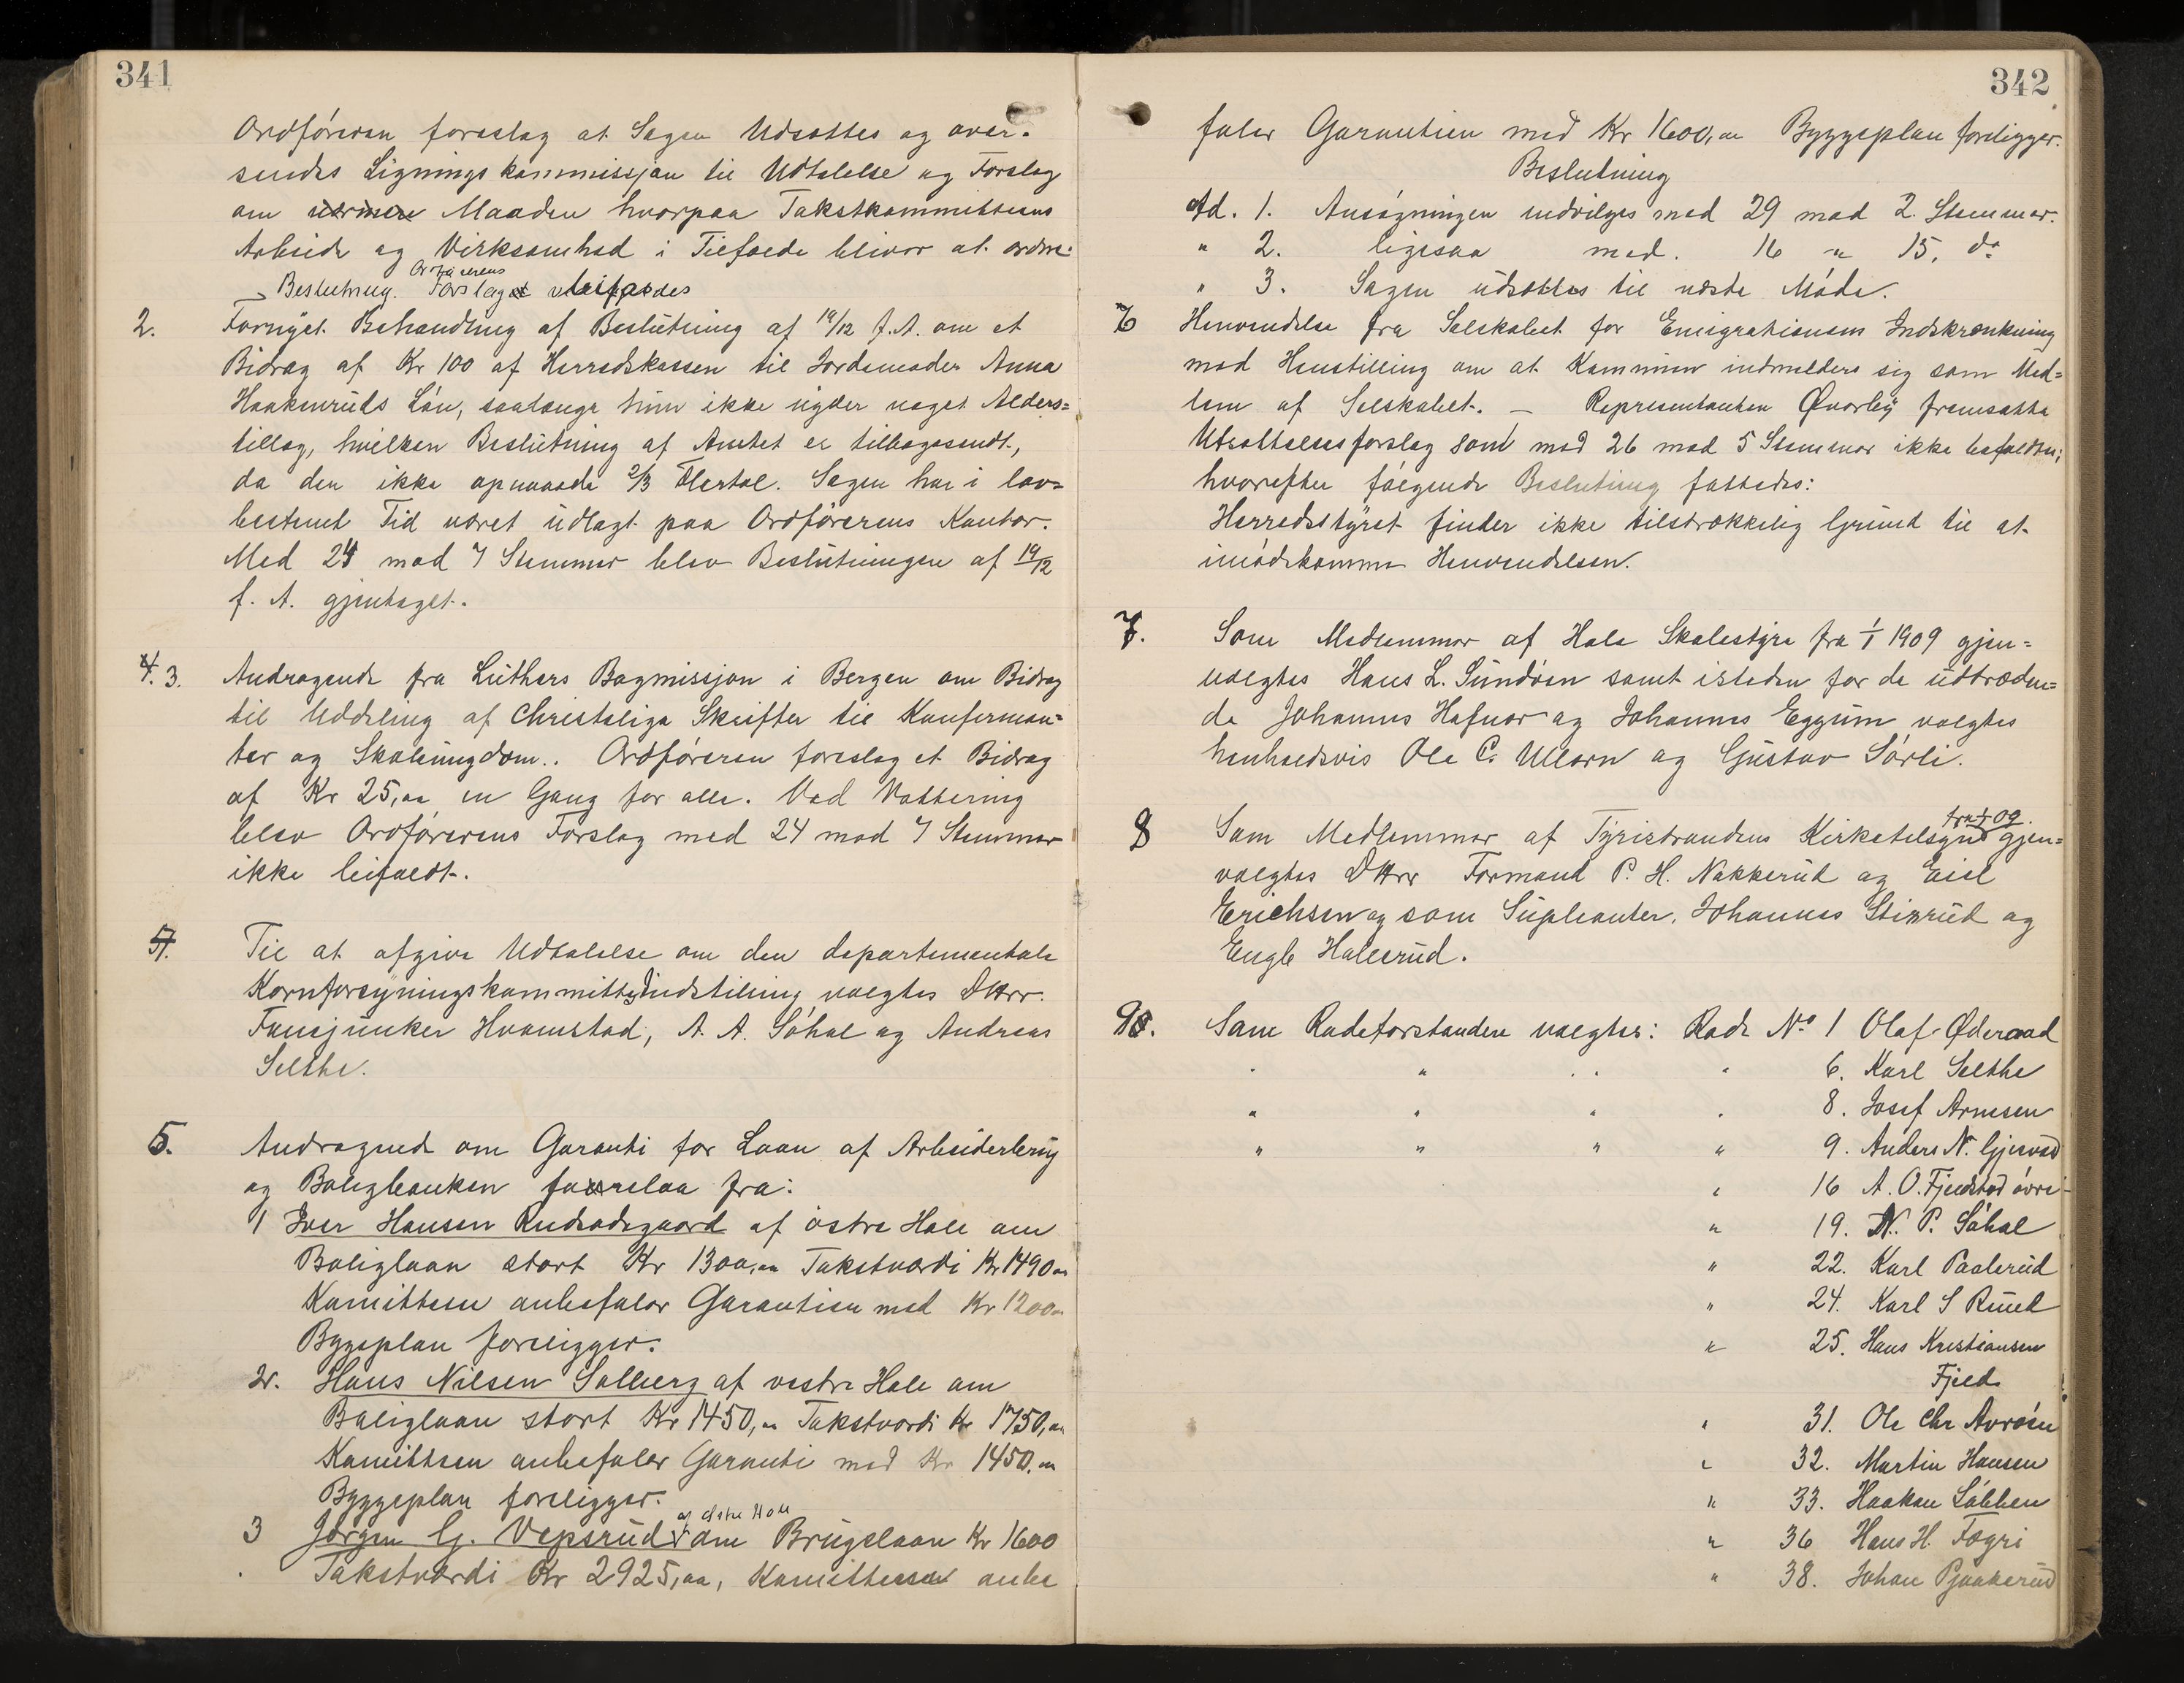 341
Ordføreren foreslog at Sagen Udsættes og over-
sendes Ligningskommissjon til Udtalelse og Forslag
om Maaden hvorpaa Takstkommitteens
Arbeide og Virksomhed i Tilfælde bliver at ordne.
Ordførerens
Beslutning. Forslag bifaldes
2. Fornyet Behandling af Beslutning af 19/12 f. A. om et
Bidrag af Kr 100 af Herredskassen til Jordemoder Anna
Haakenruds Løn, saalænge hun ikke nyder noget Alders-
tillæg, hvilken Beslutning af Amtet er tilbagesendt,
da den ikke opnaaede 2/3 Flertal. Sagen har i lov-
bestemt Tid været udlagt paa Ordførerens Kontor.
Med 24 mod 7 Stemmer blev Beslutningen af 19/12
f. A. gjentaget.
4. 3. Andragende fra Luthers Bogmissjon i Bergen om Bidrag
til Uddeling af Christelige Skrifter til Konferman-
ter og Skoleungdom.. Ordføreren foreslog et Bidrag
af Kr 25,00 en Gang for alle. Ved Vottering
blev Ordførerens Forslag med 24 mod 7 Stemmer
ikke bifaldt.
4. Til at afgive Udtalelse om den departementale
Kornforsyningskommittes Indstilling valgtes DHrr.
Fanejunker Hvamstad, A. A. Søhol og Andreas
Selthe.
5. Andragende om Garanti for Laan af Arbeiderbrug
og Boligbanken forelaa fra:
1 Iver Hansen Rudsødegaard af østre Hole om
Boliglaan stort Kr 1300,00 Takstværdi Kr 1490 00
Komitteen anbefaler Garantien med Kr 1200 00
Bygeplan foreligger.
2. Hans Nilsen Solberg af vestre Hole om
Boliglaan stort Kr 1450,00 Takstværdi Kr 1750,00
Komitteen anbefaler Garanti med Kr 1450.00
Byggeplan foreligger.
af østre Hole
3 Jørgen G. Vepsrud om Brugslaan Kr 1600
Takstværdi Kr 2925,00, Komitteen anbe
342
faler Garantien med Kr 1600,00 Byggeplan foreligger.
Beslutning
Ad. 1. Ansøgningen indvilges med 29 mod 2. Stemmer.
" 2. ligesaa med. 16 " 15, do
" 3. Sagen udsættes til næste Møde.
6 Henvendelse fra Selskabet for Emigrationens Indskrænkning
med Henstilling om at Kommunen indmelder sig som Med-
lem af Selskabet. — Representanten Qværby fremsatte
Udsættelsesforslag som med 26 mod 5 Stemmer ikke bifaldtes;
hvorefter følgende Beslutning fattedes:
Herredsstyret finder ikke tilstrækkelig Grund til at
imødekomme Henvendelsen.
7. Som Medlemmer af Hole Skolestyre fra 1/1 1909 gjen-
valgtes Hans L. Sundøen samt isteden for de udtræden-
de Johannes Hafnor og Johannes Eggum valgtes
henholdsvis Ole C. Ullern og Gustav Sørli.
fra 1/1 09.
8 Som Medlemmer af Tyristrandens Kirketilsyn gjen-
valgtes DHrr Formand P. H. Nakkerud og Eiel
Erichsen og som Supleanter, Johannes Stixrud og
Engb Halesrud.
9. Som Rodeforstandere valgtes: Rode No 1 Olaf Øderaad
" " " " 6. Karl Selthe
" " " " 8. Josef Arnesen
" " " " 9. Anders N. Gjesvold
" 16 A. O. Fjeldstad øvre
" 19. N. P. Søhol
" 22. Karl Paalerud
" 24. Karl S Ruud
" 25. Hans Kristiansen
Fjeld
" 31. Ole Chr Avrøen
" 32. Martin Hansen
" 33. Haakon Løbben
" 36 Hans H. Fægri
" 38. Johan Pjaakerud